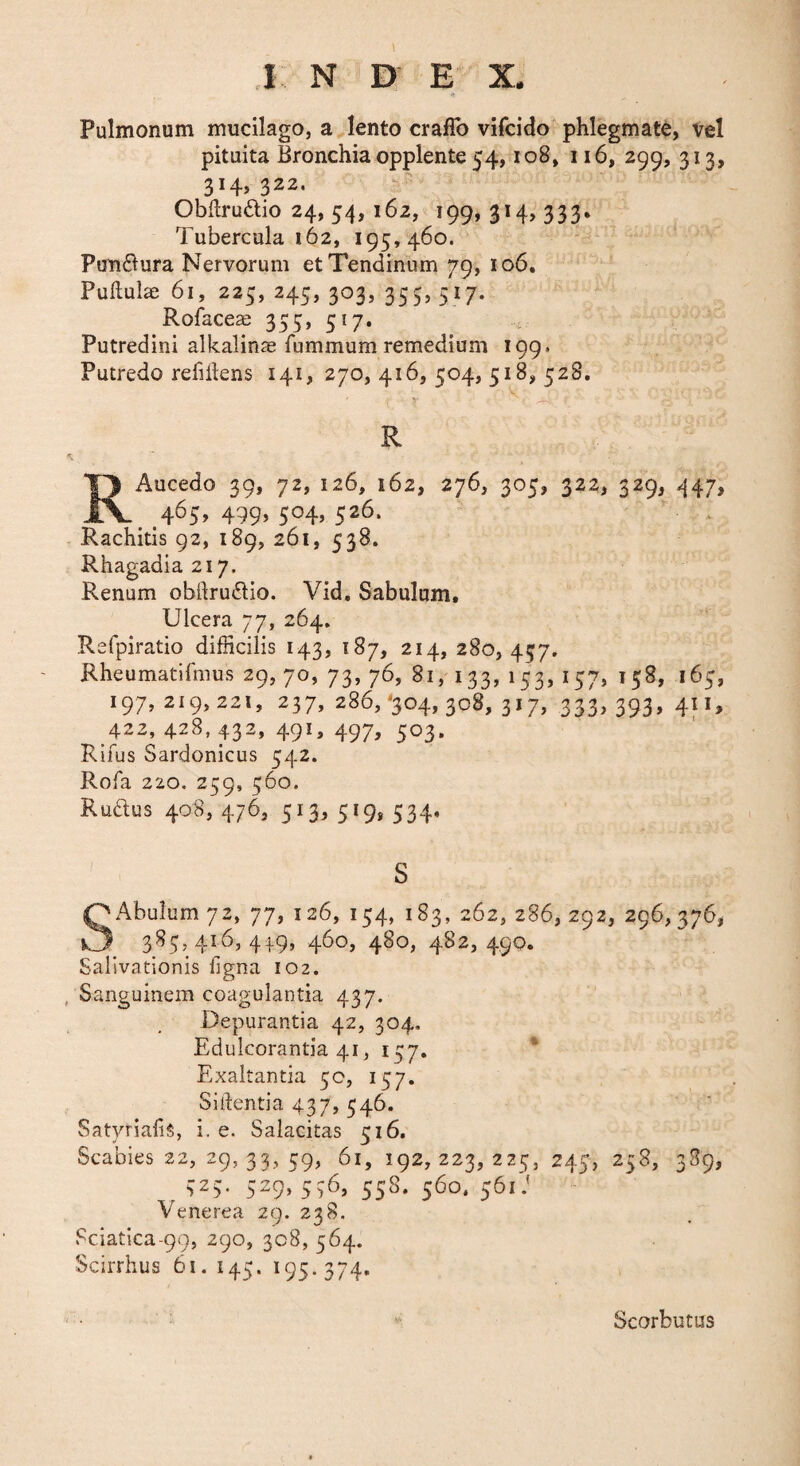 INDEX.
Pulmonum mucilago, a lento craſſo viſcido phlegmate, vel
pituita Bronchia opplente 54, 108, 116, 299, 313,
314, 322.
Obſtructio 24, 54, 162, 199, 314, 333.
Tubercula 162, 195, 460.
Punctura Nervorum et Tendinum 79, 106.
Puſtulæ 61, 225, 245, 303, 355, 517.
Roſaceæ 355, 517.
Putredini alkalinæ ſummum remedium 199.
Putredo reſiſtens 141, 270, 416, 504, 518, 528.
R
RAucedo 39, 72, 126, 162, 276, 305, 322, 329, 447,
465, 499, 504, 526.
Rachitis 92, 189, 261, 538.
Rhagadia 217.
Renum obſtructio. Vid. Sabulum.
Ulcera 77, 264.
Reſpiratio difficilis 143, 187, 214, 280, 457.
Rheumatiſmus 29, 70, 73, 76, 81, 133, 153, 157, 158, 165,
197, 219, 221, 237, 286, 304, 308, 317, 333, 393, 411,
422, 428, 432, 491, 497, 503.
Riſus Sardonicus 542.
Roſa 220. 259, 560.
Ructus 408, 476, 513, 519, 534.
S
SAbulum 72, 77, 126, 154, 183, 262, 286, 292, 296, 376,
385, 416, 449, 460, 480, 482, 490.
Salivationis ſigna 102.
Sanguinem coagulantia 437.
Depurantia 42, 304.
Edulcorantia 41, 157.
Exaltantia 50, 157.
Siſtentia 437, 546.
Satyriaſis, i. e. Salacitas 516.
Scabies 22, 29, 33, 59, 61, 192, 223, 225, 245, 258, 389,
525. 529, 556, 558. 560, 561.
Venerea 29. 238.
Sciatica 99, 290, 308, 564.
Scirrhus 61. 145. 195. 374.
Scorbutus